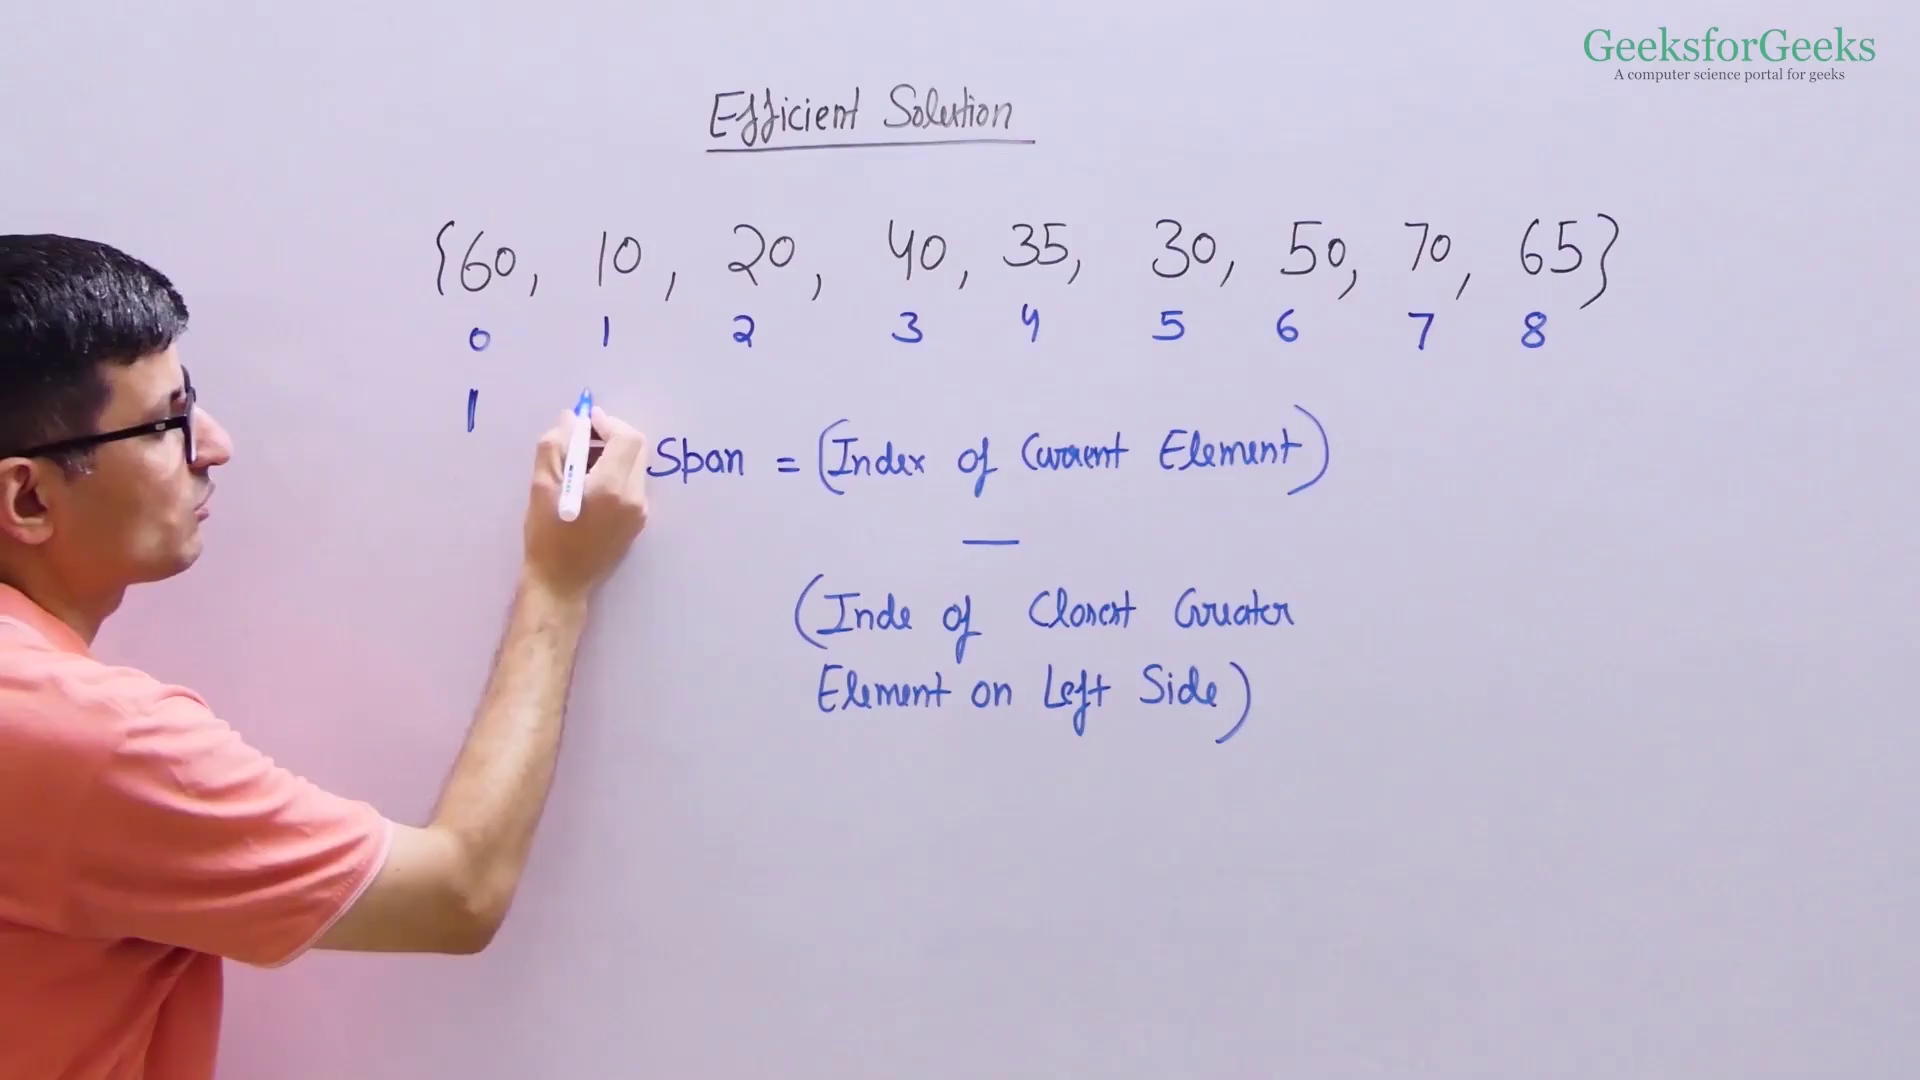 GeeksforGeeks
A computer science portal for geeks
Efficient Solution
{60, 10, 20, 40, 35, 30, 50, 70, 65}
0 1 2 3 4 5 6 7 8
1
Span = (Index of Current Element)
—
(Inde of Closest Greater
Element on Left Side)